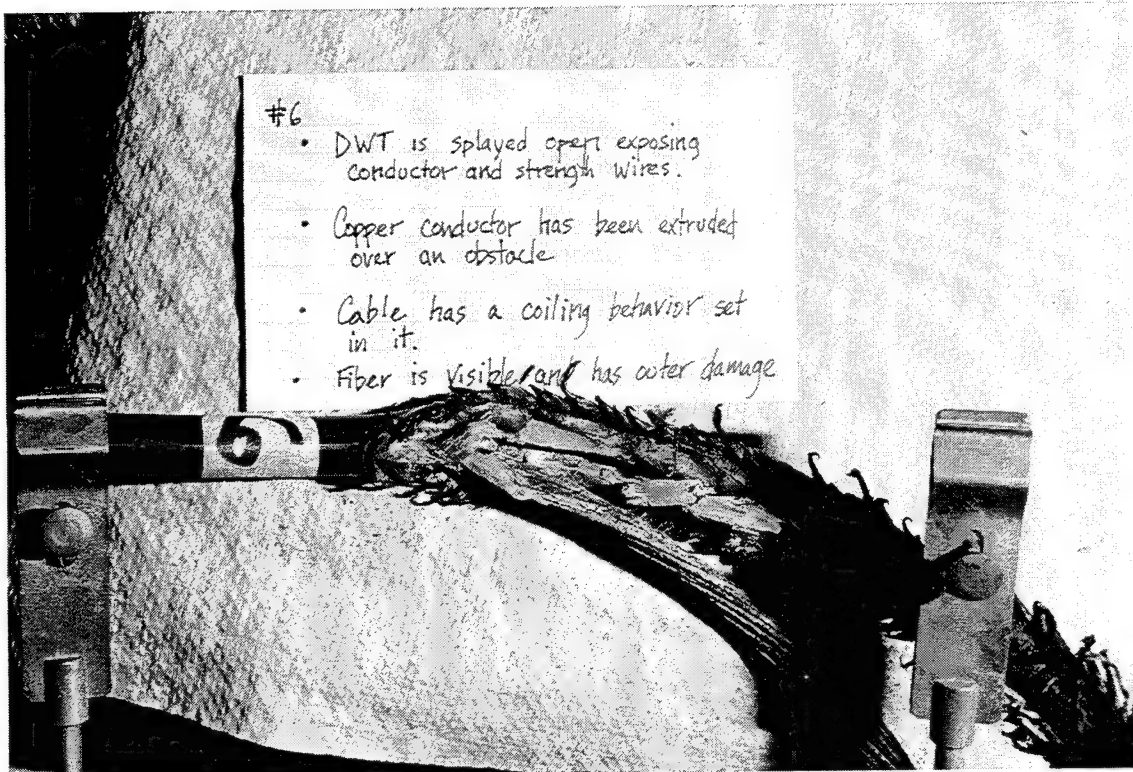 #6
• DWT is splayed open exposing
conductor and strength wires.
• Copper conductor has been extruded
over an obstacle
• Cable has a coiling behavior set
in it.
• Fiber is visible and has outer damage
6